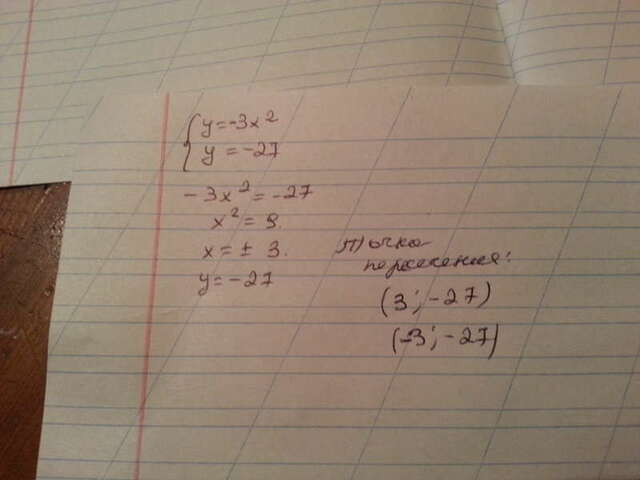 y=-3x²
y=-27
-3x²=-27
x²=9.
x=±3.
y=-27
Точка
пересечения:
(3;-27)
(-3;-27)